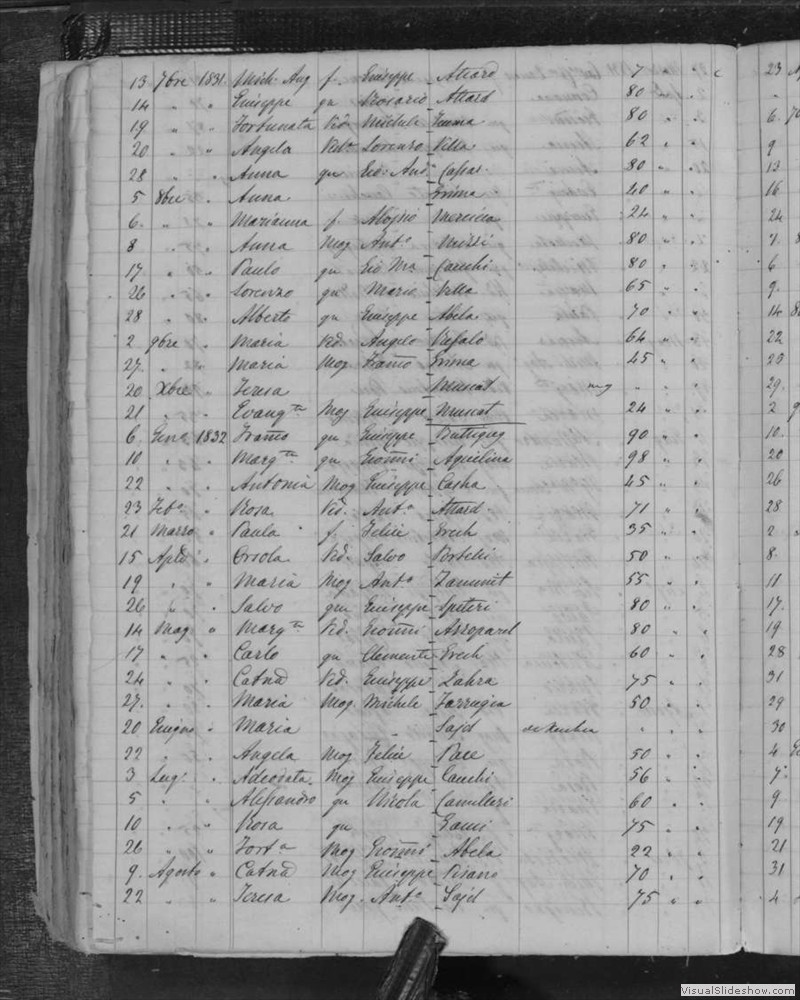 13 7bre 1831 Mich: Ang f. Giuseppe Attard 7 " "
14 " " Giuseppe qu Rosario Attard 80 " "
19 " " Fortunata Ved. Michele Emma 80 " "
20 " " Angela Ved. Lorenzo Villa 62 " "
28 " " Anna qu Gio: And Cassar 80 " "
5 8bre " Anna Grima 40 " "
6 " " Marianna f. Aloisio 24 " "
8 " " Anna Mog Anto Mizzi 80 " "
17 " " Paulo qu Gio Ma Cauchi 80 " "
26 " " Lorenzo qu Mario Vella 65 " "
28 " " Alberto qu Giuseppe Abela 70 " "
2 9bre " Maria Ved. Angelo Refalo 64 " "
27 " " Maria Mog Franco Grima 45 " "
20 Xbre " Teresa Muscat " "
21 " " Evangta Mog Giuseppe Muscat 24 " "
6 Geno 1832 Franco qu Giuseppe Buttigieg 90 " "
10 " " Margta qu Gionni Aquilina 98 " "
22 " " Antonia Mog Giuseppe Casha 45 " "
23 Febo " Rosa Ved. Anto Attard 71 " "
21 Marzo " Paula f. Felice Grech 35 " "
15 Aple " Orsola Ved. Salvo Portelli 50 " "
19 " " Maria Mog Anto Zammit 55 " "
26 " " Salvo qm Giuseppe Spiteri 80 " "
14 Mag " Margta Ved. Gionni Azzopard 80 " "
17 " " Carlo qu Clemente Grech 60 " "
24 " " Catna Ved. Giuseppe Zahra 75 " "
27 " " Maria Mog Michele Farrugia 50 " "
20 Giugno " Maria Sajd " "
22 " " Angela Mog Felice Pace 50 " "
3 Lug. " Adeodata Mog Giuseppe Cauchi 56 " "
5 " " Alessandro qu Nicola Camilleri 60 " "
10 " " Rosa qu Gauci 75 " "
26 " " Forta Mog Gionni Abela 22 " "
9 Agosto " Catna Mog Giuseppe Pisano 70 " "
22 " " Teresa Mog Anto Sajd 75 " "
VisualSlideshow.com